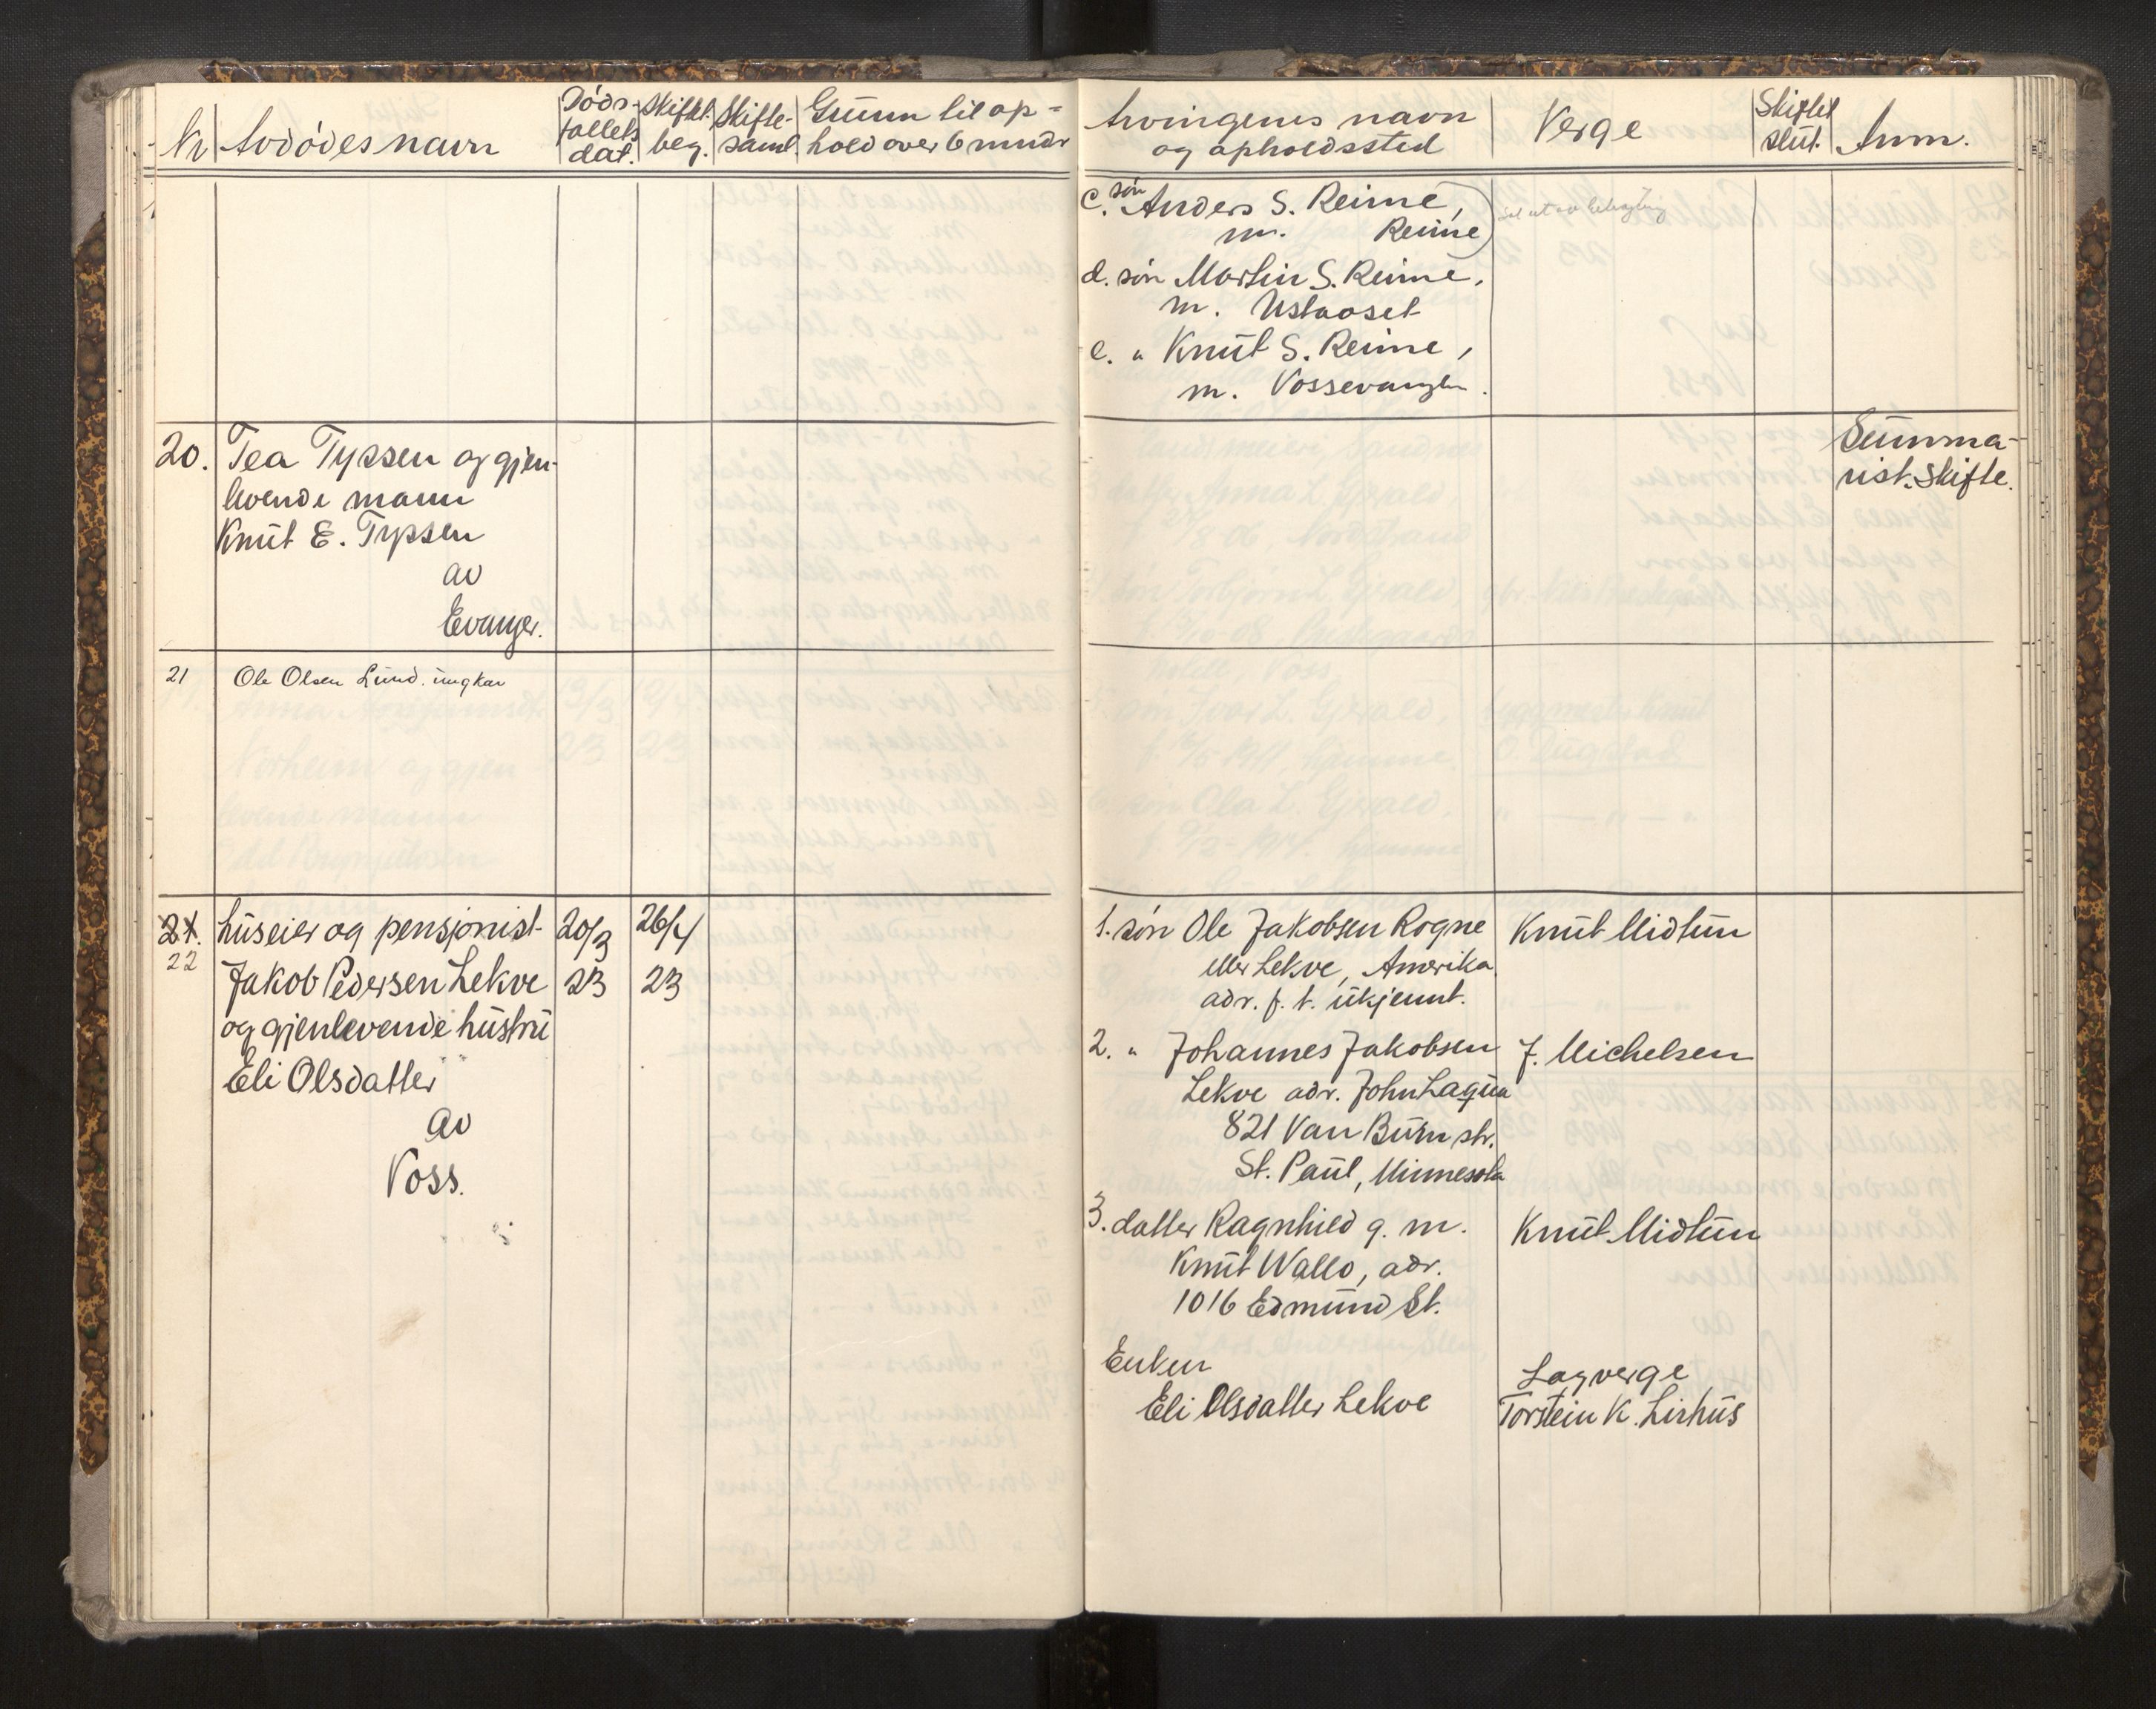 Nr Avdødes navn Døds- Skiftet Skifte- Grunn til op-
fallets beg. saml. hold over 6 mndr
dat.
20. Tea Typssen og gjen-
levende mann
Knut E. Typssen
av
Evanger.
21 Ole Olsen Lund. ungkar
21. huseier og pensjonist 20/3 26/4
22
Jakob Pedersen Lekve 23 23
og gjenlevende hustru
Eli Olsdatter
av
Voss.
Arvingenes navn Verge Skiftet Anm.
og opholdssted slut.
c. søn Anders S. Reime,
m. Reime
d. søn Martin S. Reime,
m. Ustaoset
e. " Knut S. Reime,
m. Vossevangen.
Summa-
risk. skifte.
1. søn Ole Jakobsen Rogne Knut Midtun
eller Lekve, Amerika
adr. f. t. ukjennt.
2. " Johannes Jakobsen J. Michelsen
Lekve adr. John Laqua
821 Van Burn str.
St. Paul, Minnesota
3. datter Ragnhild g. m. Knut Midtun
Knut Wallo, adr.
1016 Edmund St.
Enken Lagverge
Eli Olsdatter Lekve Torstein K. Lirhus